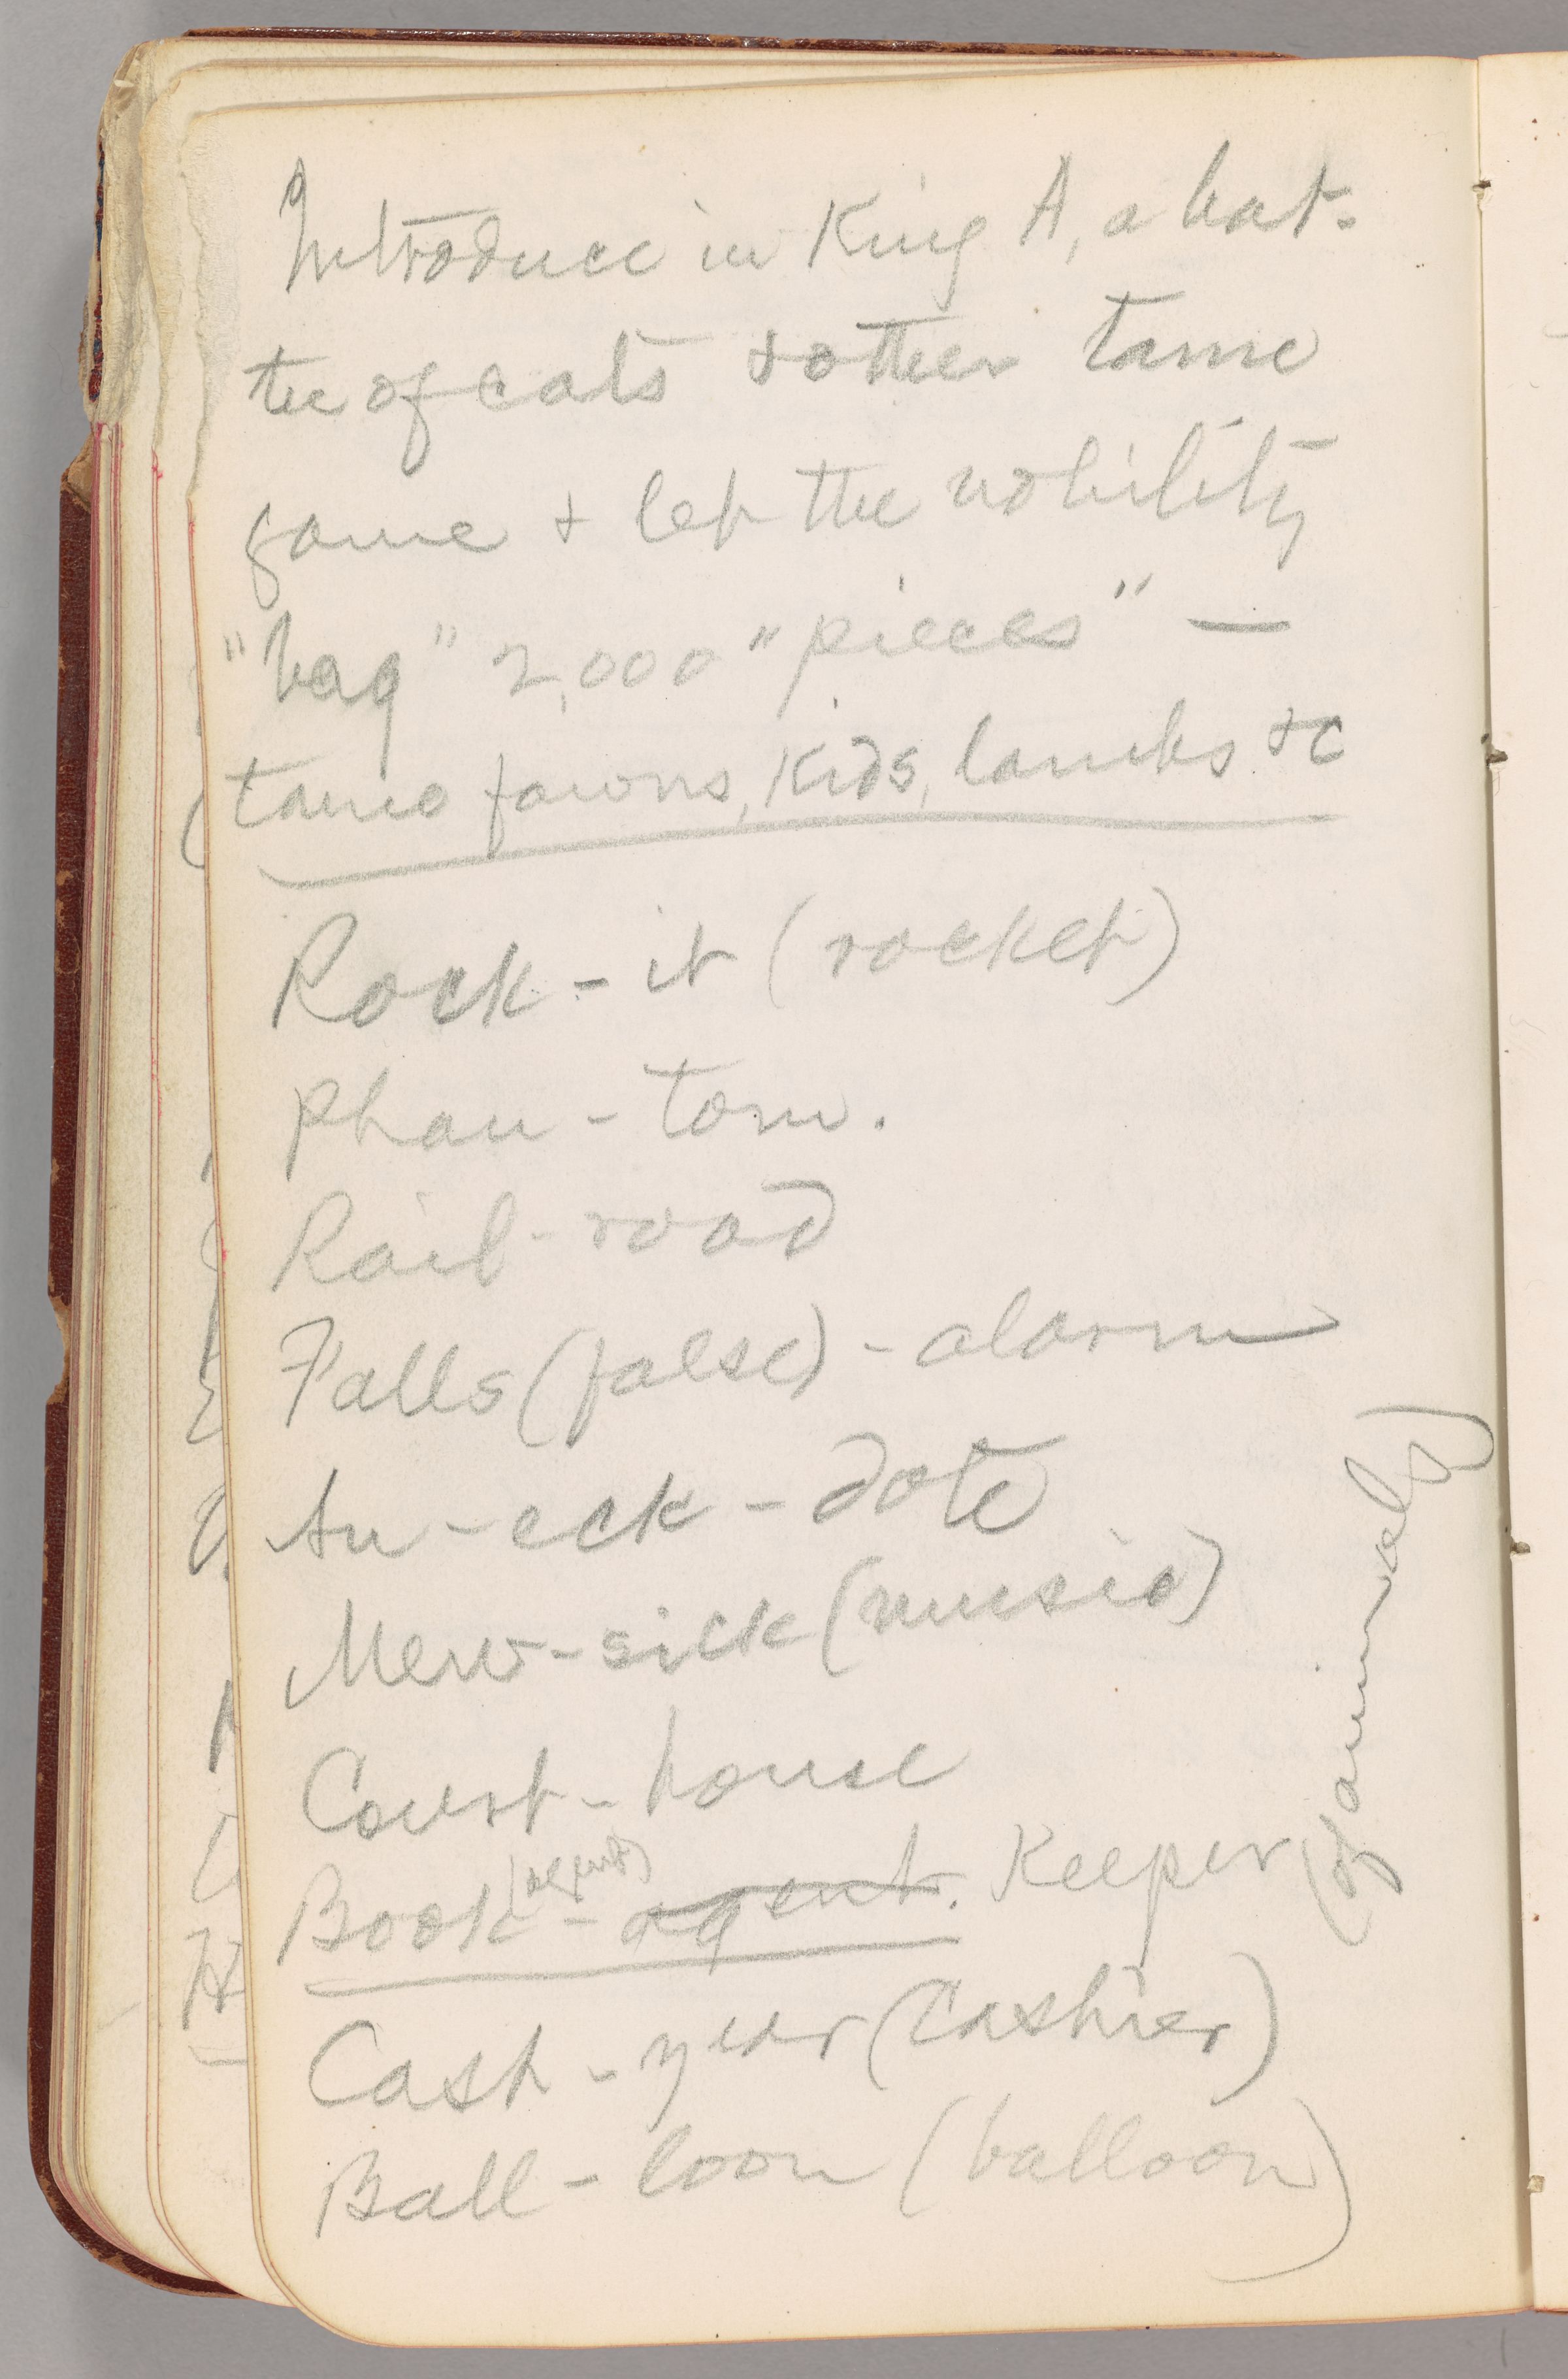 Introduce in King A, a bat-
tue of cats & other tame
game & let the nobility
"bag" 2,000 "pieces" —
tame fawns, kids, lambs &c
Rock-it (rocket)
Phan-tom.
Rail-road
Falls (false)-alarm
An-eck-dote
Mew-sick (music)
Court-house
Book-agent. Keeper
(agent)
(of animals)
Cash-year (Cashier)
Ball-loon (balloon)